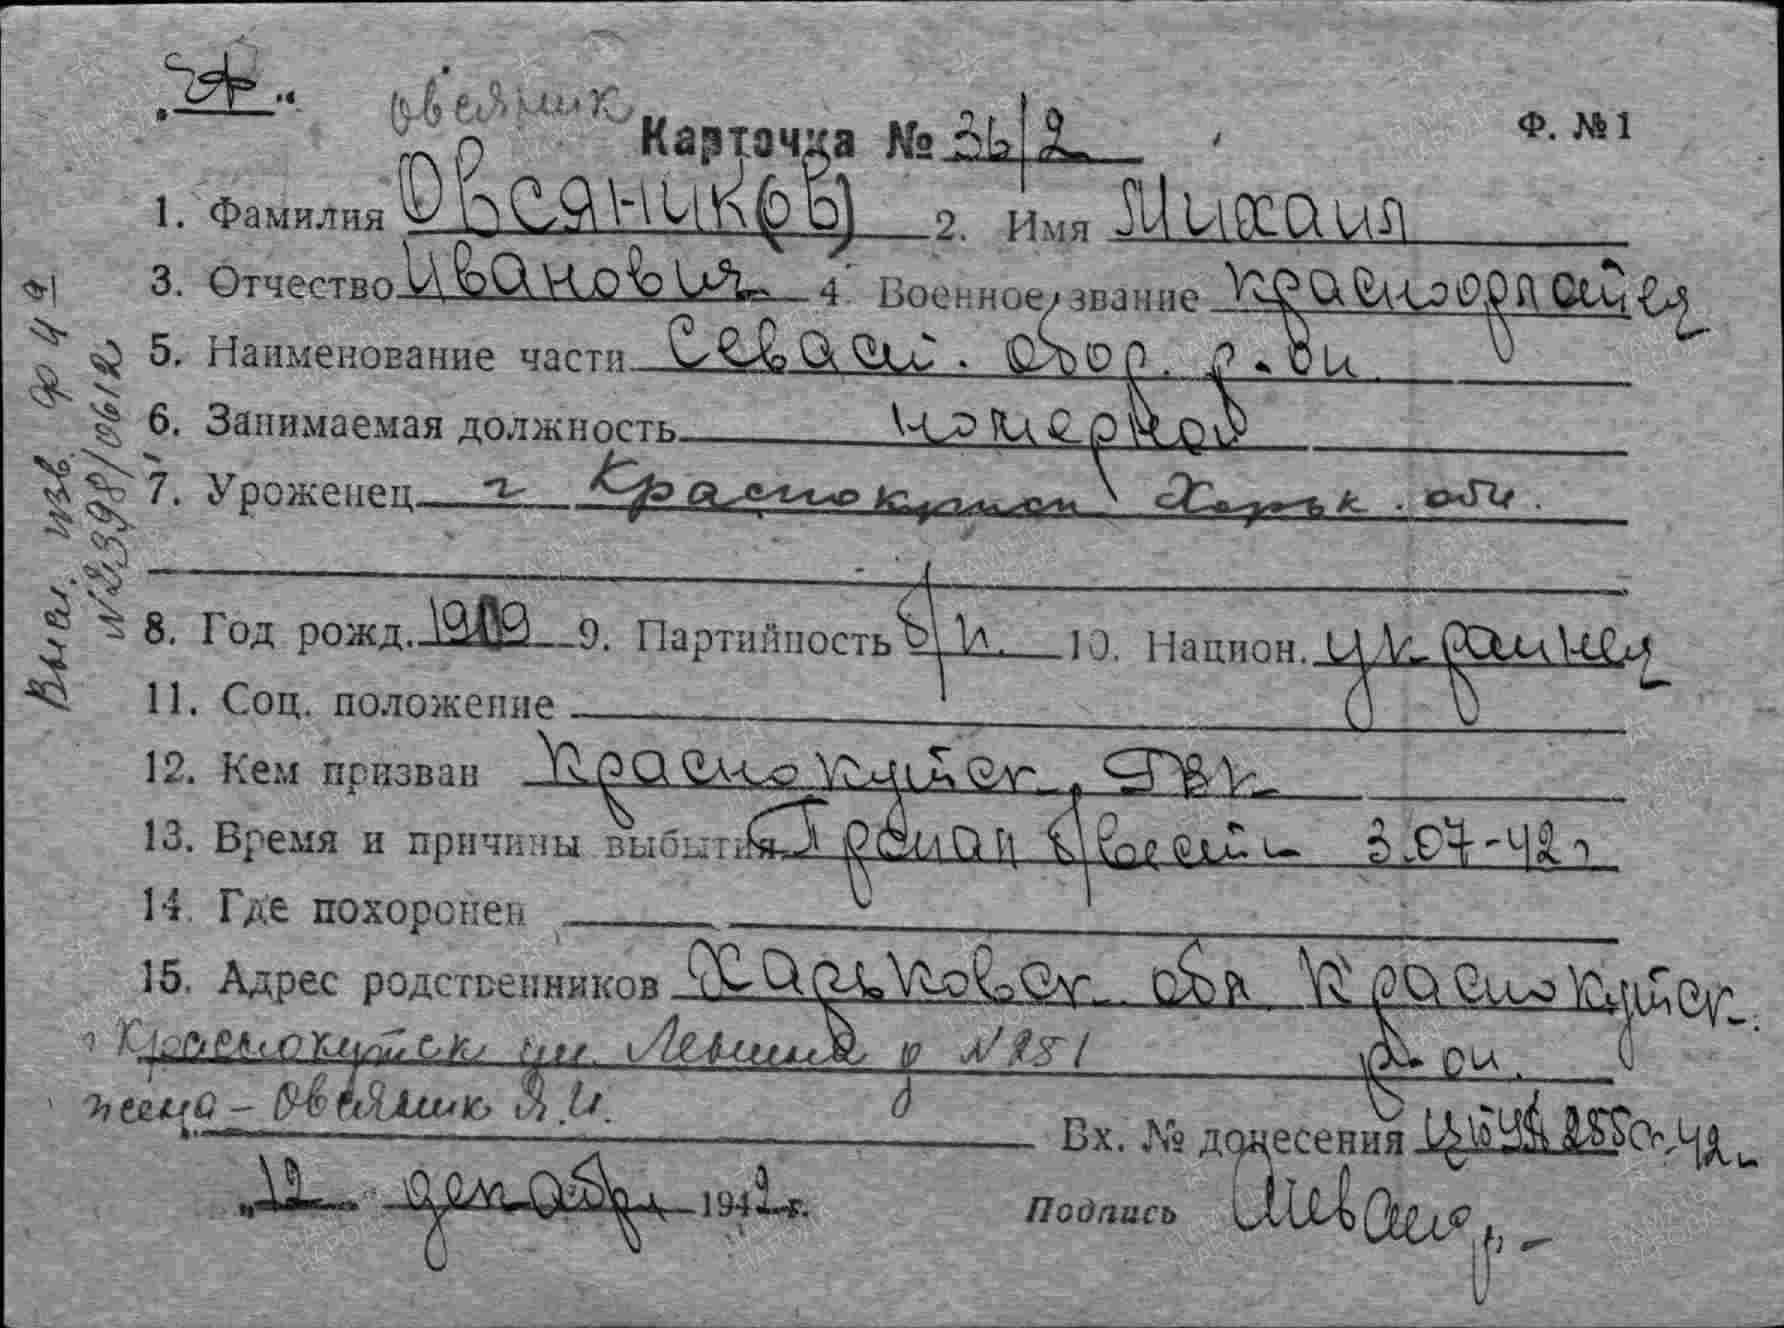 овсяник
Карточка № 36/2
Ф. №1
1. Фамилия Овсяник(ов) 2. Имя Михаил
3. Отчество Иванович 4 Военное звание красноармеец
5. Наименование части Севаст. обор. р-он
6. Занимаемая должность номерной
7. Уроженец г Краснокутск Харьк. обл.
8. Год рожд. 1909 9. Партийность б/п. 10. Национ. украинец
11. Соц. положение
12. Кем призван Краснокутск. ГВК
13. Время и причины выбытия Пропал б/вести 3.07-42г
14. Где похоронен
15. Адрес родственников Харьковск. обл Краснокутск.
г Краснокутск ул. Ленина д №251 р-он.
жена - Овсяник Я.И.
Вх. № донесения 255 42г
"12" декабря 1942 г. Подпись
Выс. изв. ф 4
№2398/0612